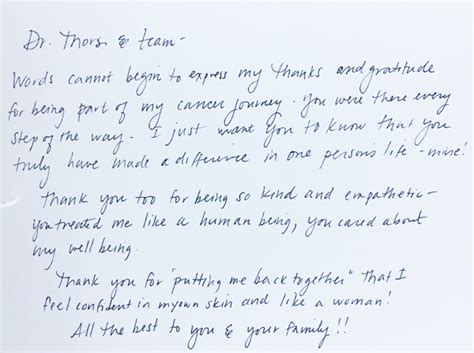 Dr. Thors & team -
Words cannot begin to express my thanks and gratitude
for being part of my cancer journey. You were there every
step of the way. I just want you to know that you
truly have made a difference in one person's life - mine!
Thank you too for being so kind and empathetic -
you treated me like a human being, you cared about
my well being.
Thank you for "putting me back together" that I
feel confident in my own skin and like a woman!
All the best to you & your family!!